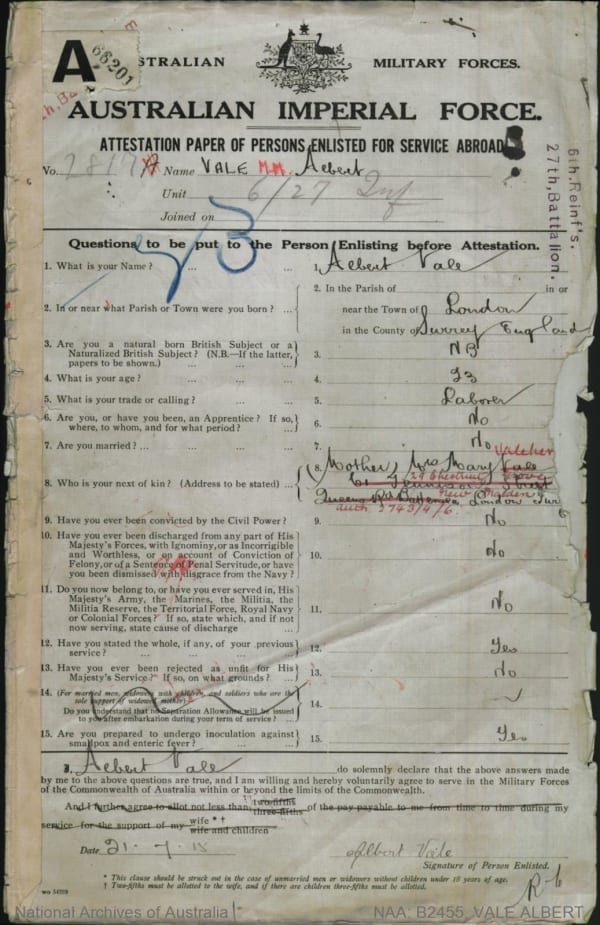 A
66201
STRALIAN MILITARY FORCES.
AUSTRALIAN IMPERIAL FORCE.
ATTESTATION PAPER OF PERSONS ENLISTED FOR SERVICE ABROAD
6th, Reinf's.
27th, Battalion.
No. 2817 Name VALE M.M. Albert
Unit 6/27 Inf
Joined on
Questions to be put to the Person Enlisting before Attestation.
1. What is your Name? ... ... 1. Albert Vale
2. In or near what Parish or Town were you born? ...
2. In the Parish of in or
near the Town of London
in the County of Surrey England
3. Are you a natural born British Subject or a
Naturalized British Subject? (N.B.—If the latter,
papers to be shown.) ... ... ...
3. NB
4. What is your age? ... ... ... 4. 23
5. What is your trade or calling? ... ... 5. Laborer
6. Are you, or have you been, an Apprentice? If so,
where, to whom, and for what period? ...
6. No
7. Are you married? ... ... ... ... 7. No
8. Who is your next of kin? (Address to be stated) ...
8. Mother, Mrs Mary Vale
Street
New Malden
London
Auth 2743/4/6.
9. Have you ever been convicted by the Civil Power? 9. No
10. Have you ever been discharged from any part of His
Majesty's Forces, with Ignominy, or as Incorrigible
and Worthless, or on account of Conviction of
Felony, or of a Sentence of Penal Servitude, or have
you been dismissed with disgrace from the Navy?
10. No
11. Do you now belong to, or have you ever served in, His
Majesty's Army, the Marines, the Militia, the
Militia Reserve, the Territorial Force, Royal Navy
or Colonial Forces? If so, state which, and if not
now serving, state cause of discharge
11. No
12. Have you stated the whole, if any, of your previous
service? ... ... ... ...
12. Yes
13. Have you ever been rejected as unfit for His
Majesty's Service? If so, on what grounds? ...
13. No
14. (For married men, widowers with children, and soldiers who are the
sole support of widowed mother)
Do you understand that no Separation Allowance will be issued
to you after embarkation during your term of service? ...
14.
15. Are you prepared to undergo inoculation against
smallpox and enteric fever? ... ...
15. Yes
I, Albert Vale do solemnly declare that the above answers made
by me to the above questions are true, and I am willing and hereby voluntarily agree to serve in the Military Forces
of the Commonwealth of Australia within or beyond the limits of the Commonwealth.
And I further agree to allot not less than two-fifths three-fifths of the pay payable to me from time to time during my
service for the support of my wife * † wife and children
Date 21-7-15 Albert Vale
Signature of Person Enlisted.
* This clause should be struck out in the case of unmarried men or widowers without children under 18 years of age.
† Two-fifths must be allotted to the wife, and if there are children three-fifths must be allotted.
R-6
National Archives of Australia NAA: B2455, VALE ALBERT